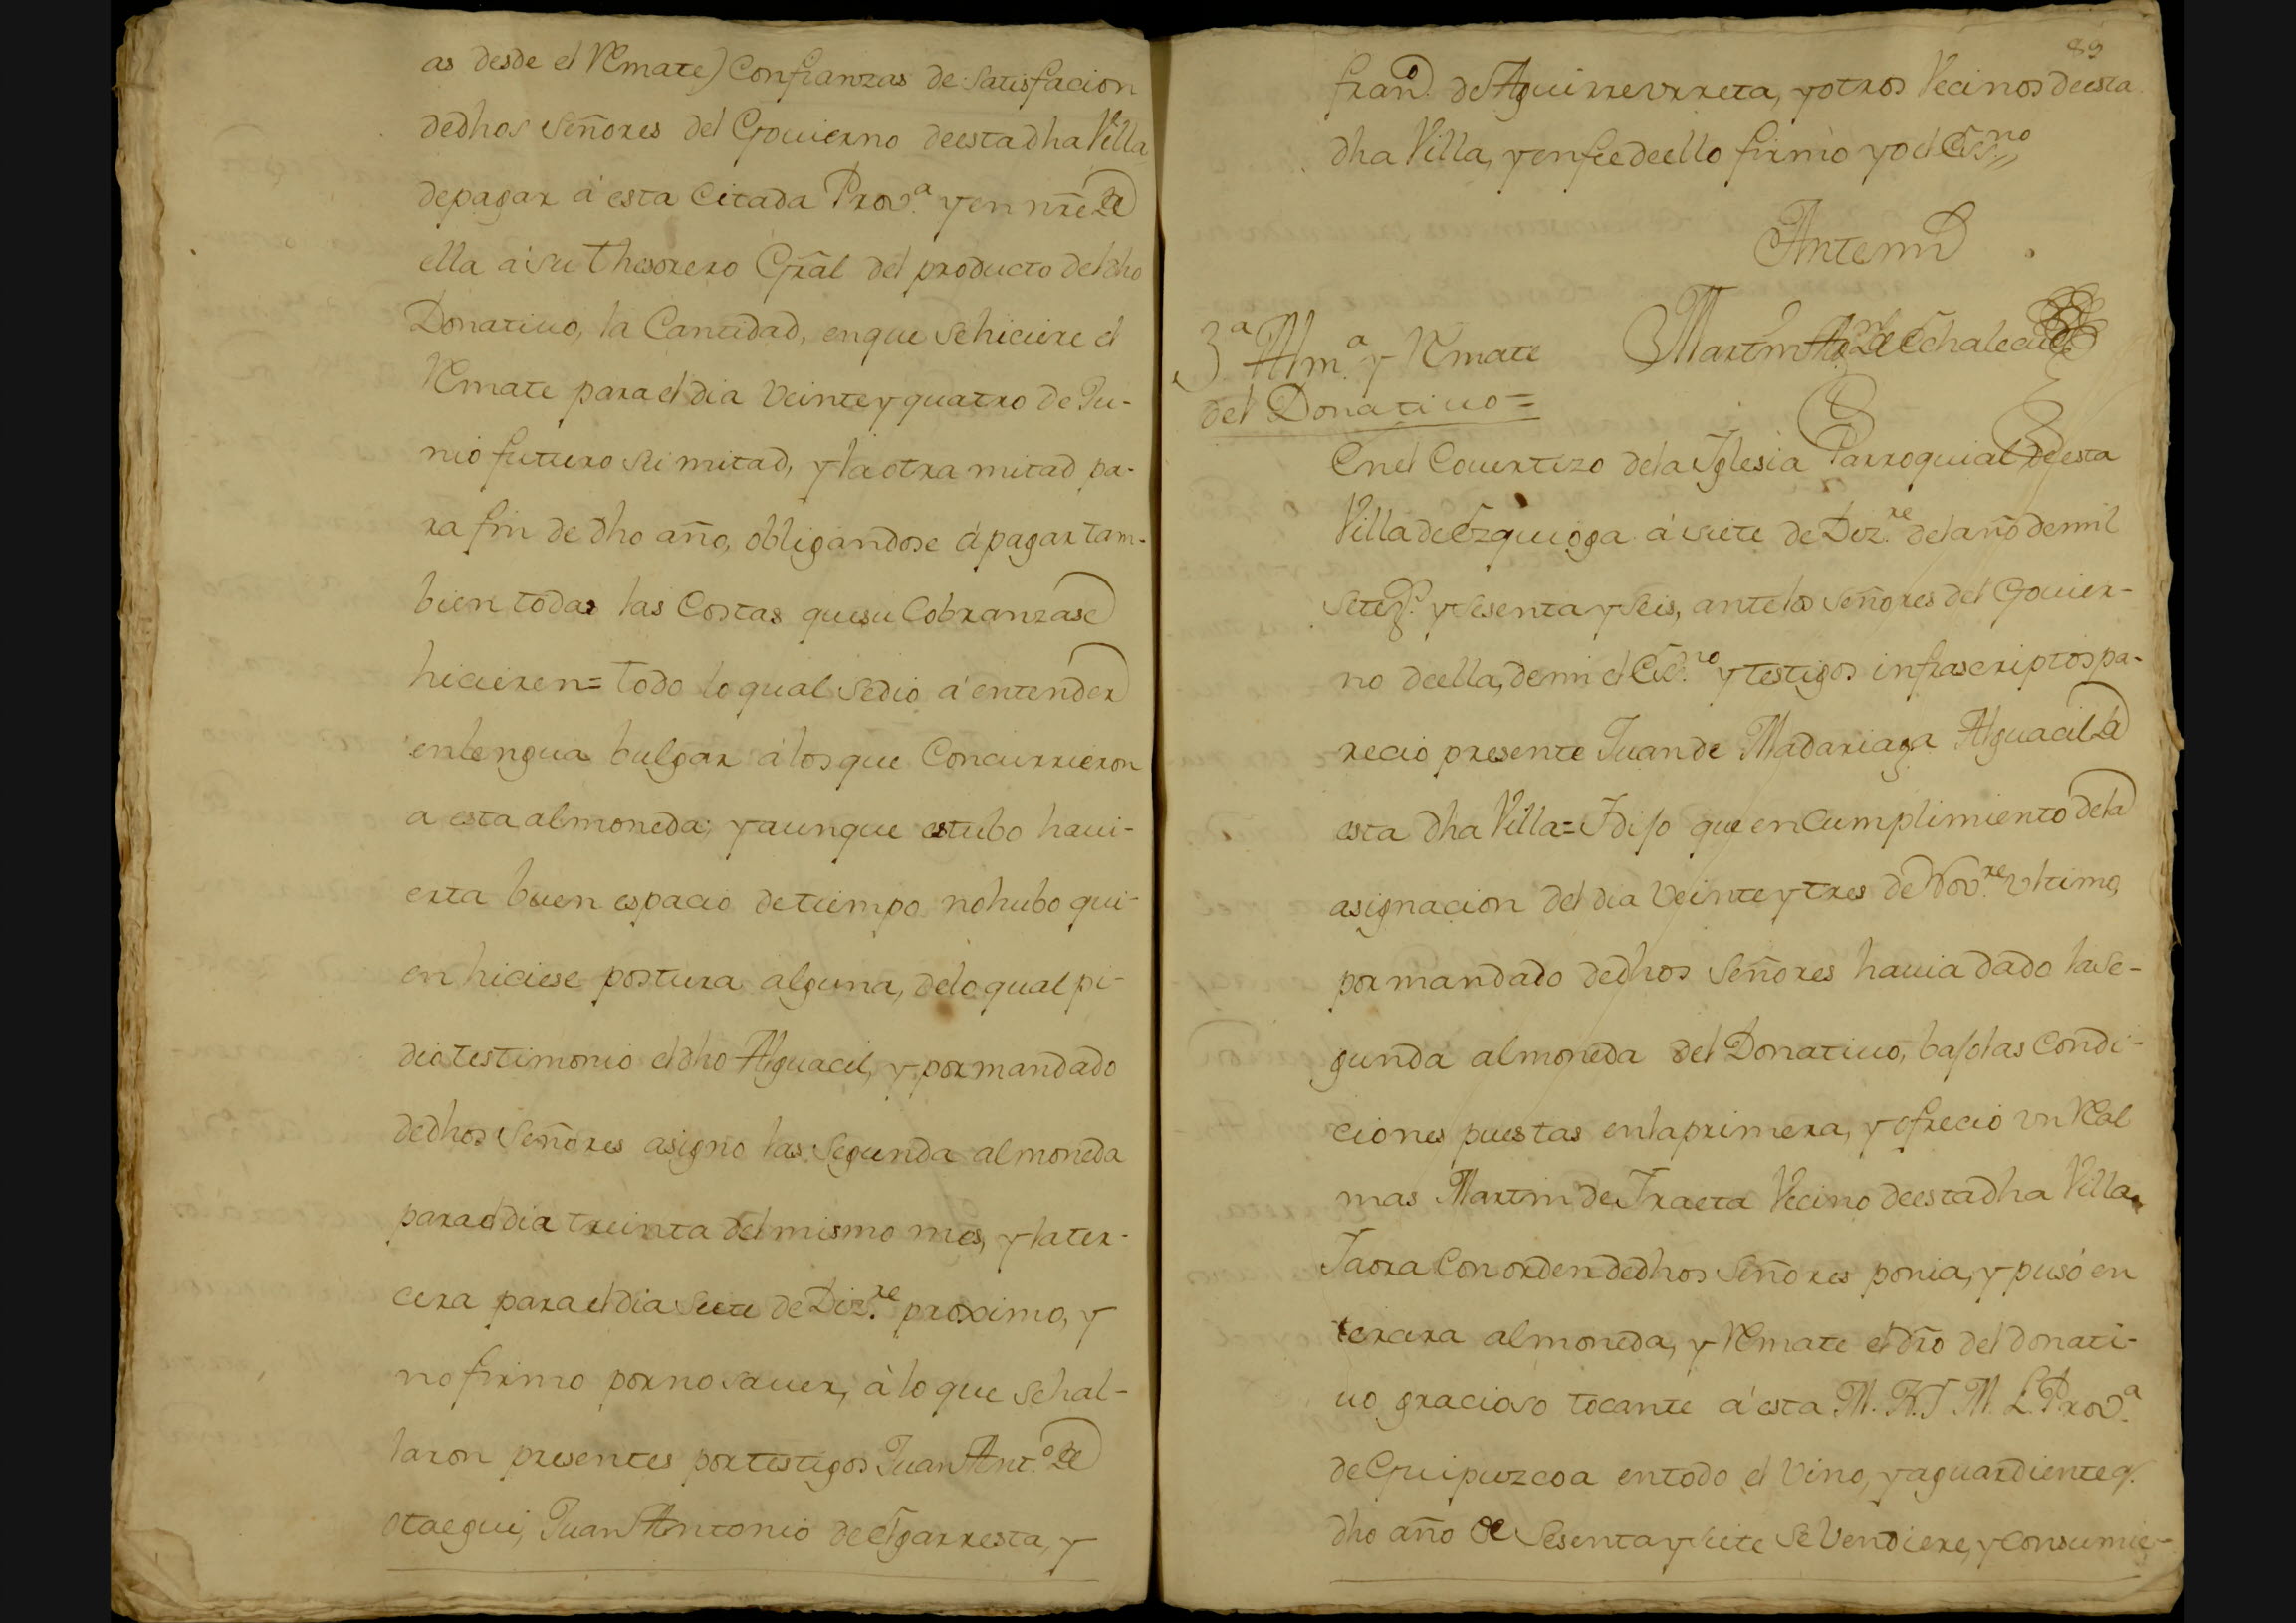 as desde el Remate) Con fianzas de Satisfacion
dedhos Señores del Govierno deesta dha Villa
depagar á esta Citada Prov.ª y en nrē de
ella á su Thesorero Grāl del producto del dho
Donativo, la Cantidad, enque Sehiciere el
Remate para el dia Veinte y quatro de Ju-
nio futuro su mitad, y la otra mitad pa-
ra fin de dho año, obligandose á pagar tam-
bien todas las Costas que su Cobranza se
hicieren= Todo lo qual Sedio á entender
en lengua bulgar á los que Concurrieron
a esta almoneda; y aunque estubo havi-
erta buen espacio de tiempo no hubo qui-
en hiciese postura alguna, delo qual pi-
dio testimonio el dho Alguacil, y por mandado
dedhos Señores asigno las Segunda almoneda
para el dia treinta del mismo mes, y la ter-
cera para el dia Siete de Diz.re proximo, y
no firmo por no saver, á lo que Sehal-
laron presentes por testigos Juan Ant.º de
otaegui, Juan Antonio de Elgarresta, y
89
Fran.co de Aguirreurreta, y otros Vecinos deesta
dha Villa, y enfee deello firmò yo el Ess.no
Antemi
Martin de Echalecu
3.ª Alm.ª y Remate
del Donativo=
En el Covertizo dela Iglesia Parroquial de esta
Villa de Ezquioga á siete de Diz.re del año de mil
Setez.s y Sesenta y Seis, ante los Señores del Govier-
no de ella, de mi el Ess.no y testigos infrascriptos pa-
recio presente Juan de Madariaga Alguacil de
esta dha Villa= I dijo que en Cumplimiento dela
asignacion del dia Veinte y tres de Nov.re ultimo,
por mandado dedhos Señores havia dado la Se-
gunda almoneda del Donativo, bajo las Condi-
ciones puestas en la primera, y ofrecio un Real
mas Martin de Iraeta Vecino deesta dha Villa,
I aora Con orden dedhos Señores ponia, y pusó en
tercera almoneda, y Remate el dro del donati-
vo gracioso tocante á esta M. N. I M. L. Prov.ª
de Guipuzcoa en todo el Vino, y aguardiente q.
dho año de Sesenta y Siete Se Vendiere, y Consumie-